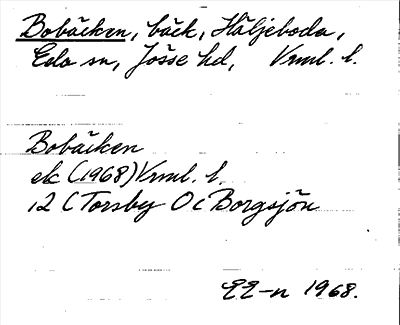 Bobäcken, bäck, Häljeboda,
Eda sn, Jösse hd, Vrml. l.
Bobäcken
ek (1968) Vrml. l.
12 C Torsby O c Borgsjön
EE-n 1968.